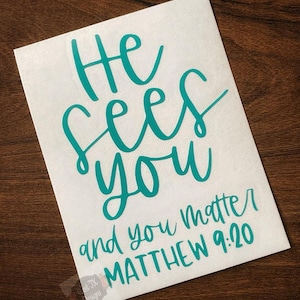 He
sees
you
and you matter
MATTHEW 9:20